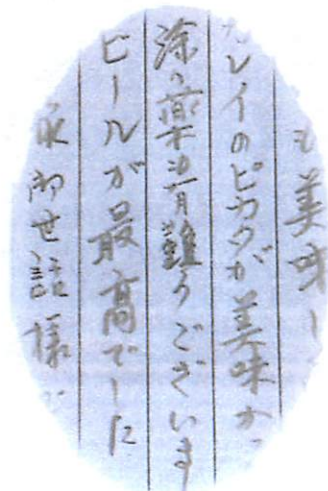 も美味し
レイのピカタが美味か
添の薬も有難うございます
ビールが最高でした
御世話様